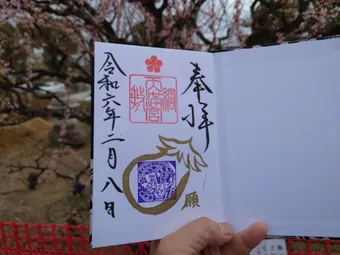 奉拝
天満宮
願
令和六年二月八日